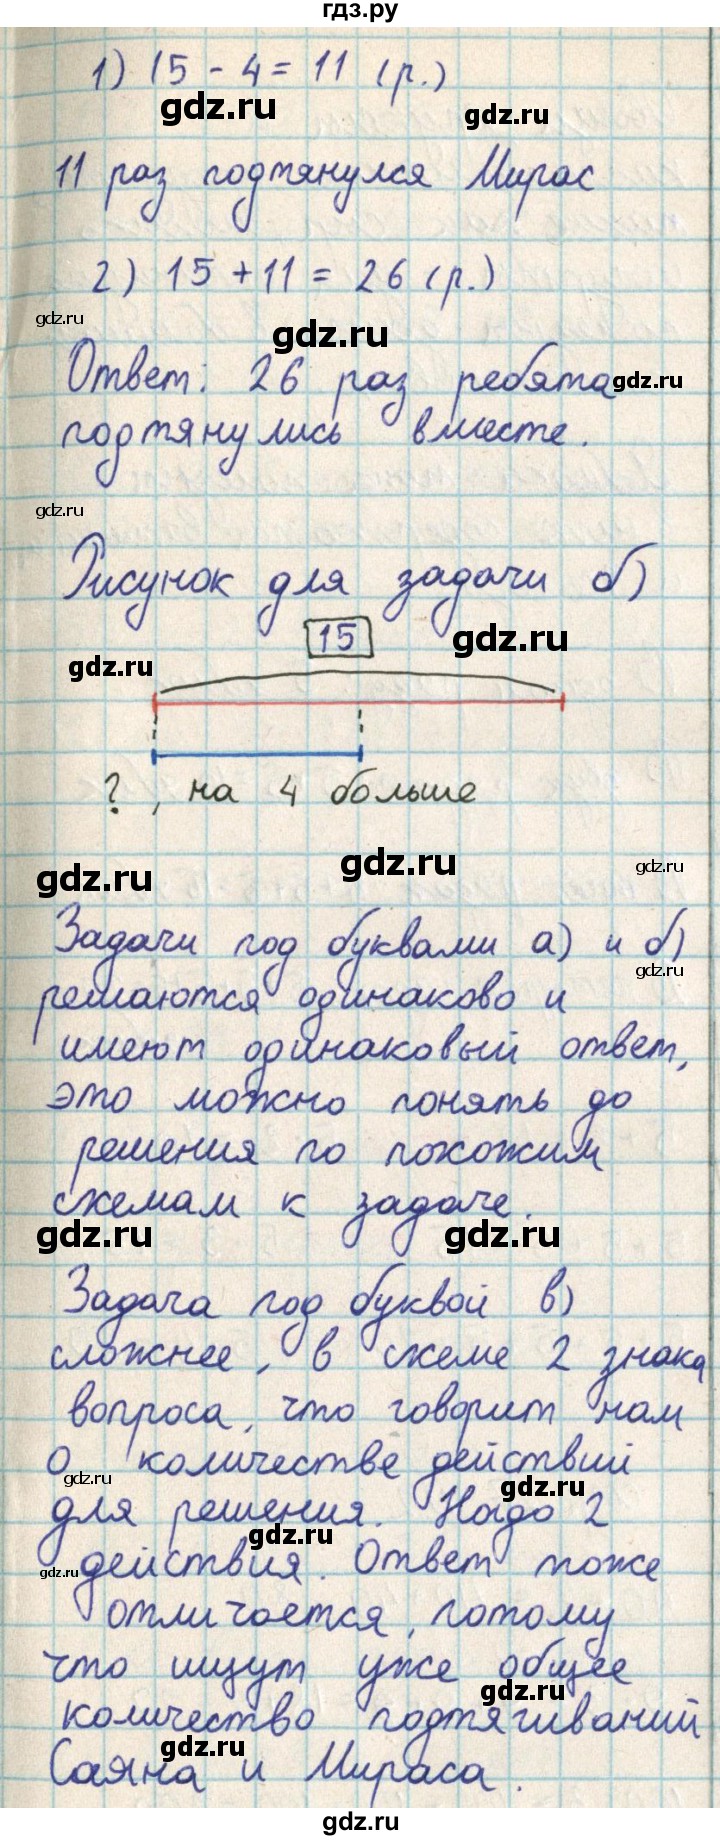 гдз.ру
1) 15 - 4 = 11 (р.)
gdz.ru
gdz.ru
11 раз подтянулся Мирас
2) 15 + 11 = 26 (р.)
gdz.ru
gdz.ru
Ответ: 26 раз ребята
gdz.ru
подтянулись вместе.
gdz.ru
Рисунок для задачи б)
15
gdz.ru
gdz.ru
?, на 4 больше
gdz.ru
gdz.ru
gdz.ru
Задачи под буквами а) и б)
gdz.ru
решаются одинаково и
имеют одинаковый ответ,
это можно понять до
решения по похожим
схемам к задаче.
gdz.ru
gdz.ru
Задача под буквой в)
сложнее, в схеме 2 знака
вопроса, что говорит нам
о количестве действий
gdz.ru
gdz.ru
для решения. Надо 2
gdz.ru
gdz.ru
действия. Ответ тоже
отличается, потому
что ищут уже общее
gdz.ru
количество подтягиваний
gdz.ru
Саяна и Мираса.
gdz.ru